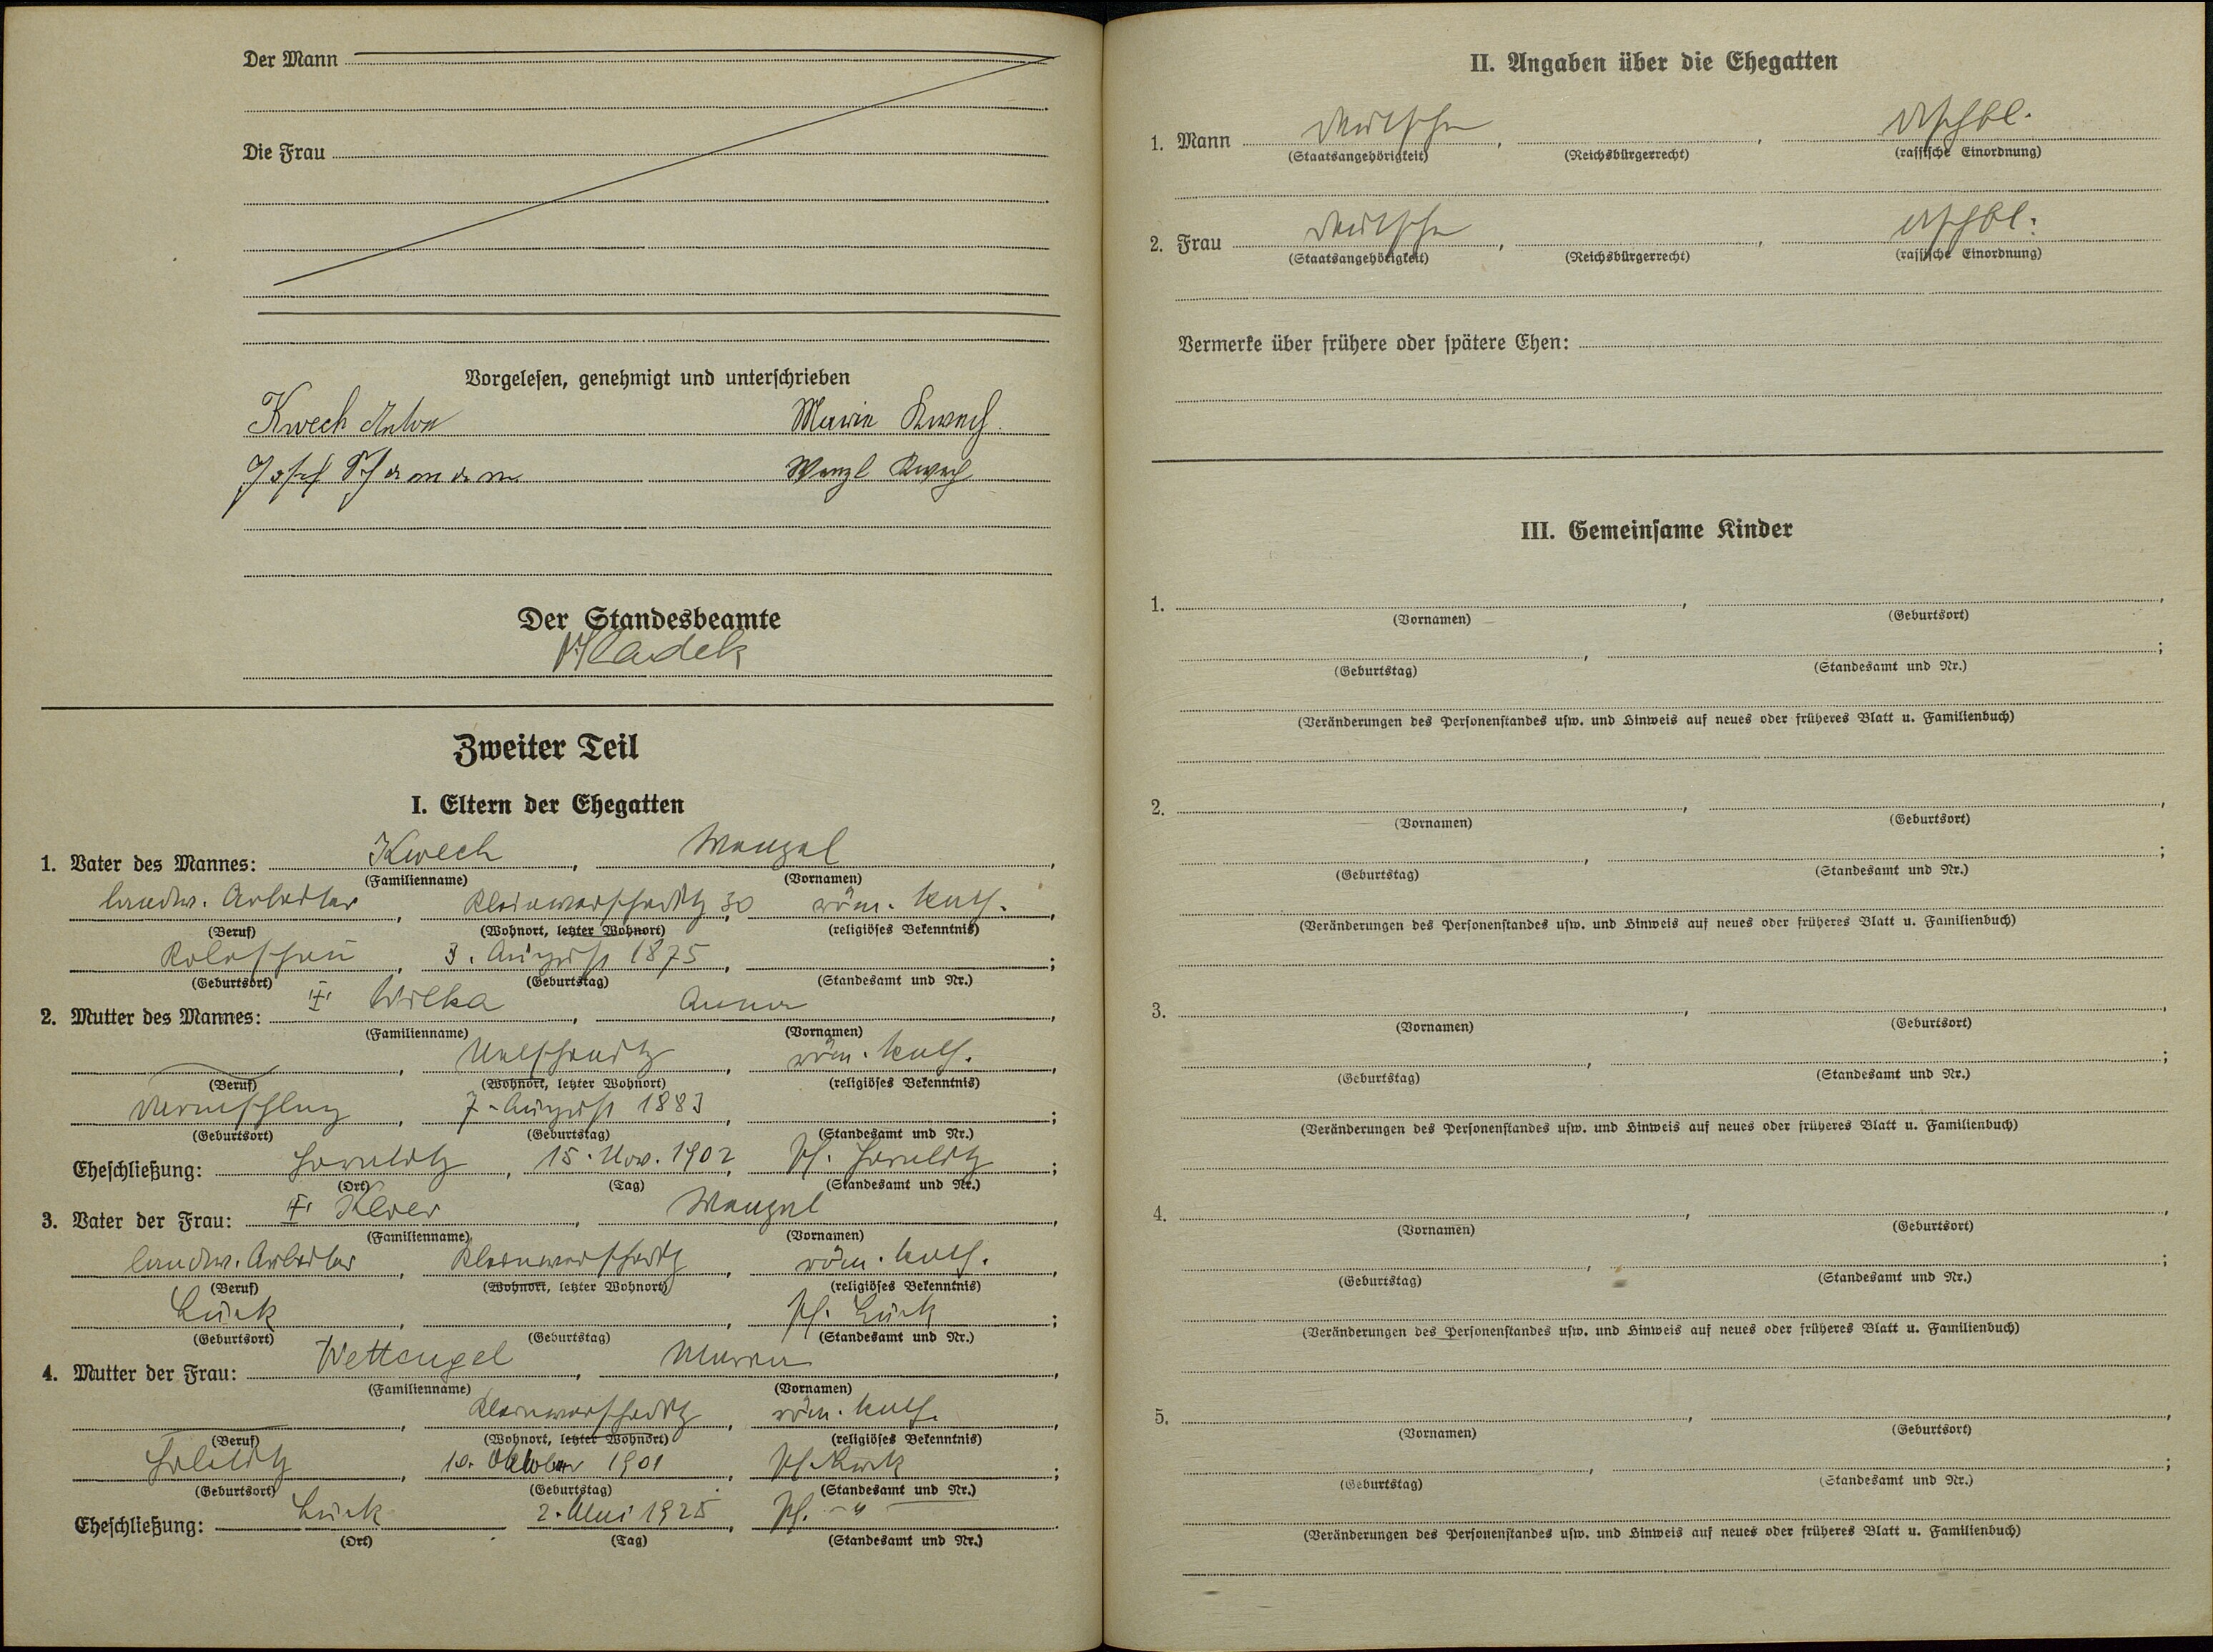 Der Mann
Die Frau
Vorgelesen, genehmigt und unterschrieben
Kwech Anton Marie Kwech.
Josef Wenzl Kwech
Der Standesbeamte
Hladek
Zweiter Teil
I. Eltern der Ehegatten
1. Vater des Mannes: Kwech, Wenzel,
(Familienname) (Vornamen)
landw. Arbeiter, Kleinworschaditz 30, röm. kath.,
(Beruf) (Wohnort, letzter Wohnort) (religiöses Bekenntnis)
Koloschau, 3. August 1875, ;
(Geburtsort) (Geburtstag) (Standesamt und Nr.)
2. Mutter des Mannes: Wilka, Anna,
(Familienname) (Vornamen)
röm. kath.,
(Beruf) (Wohnort, letzter Wohnort) (religiöses Bekenntnis)
7. August 1883, ;
(Geburtsort) (Geburtstag) (Standesamt und Nr.)
Eheschließung: 15. Nov. 1902, Pf. ;
(Ort) (Tag) (Standesamt und Nr.)
3. Vater der Frau: Wenzel,
(Familienname) (Vornamen)
landw. Arbeiter, Kleinworschaditz, röm. kath.,
(Beruf) (Wohnort, letzter Wohnort) (religiöses Bekenntnis)
Luck, , Pf. Luck ;
(Geburtsort) (Geburtstag) (Standesamt und Nr.)
4. Mutter der Frau: Wettengel, Maria,
(Familienname) (Vornamen)
, Kleinworschaditz, röm. kath.,
(Beruf) (Wohnort, letzter Wohnort) (religiöses Bekenntnis)
10. Oktober 1901, Pf. ;
(Geburtsort) (Geburtstag) (Standesamt und Nr.)
Eheschließung: Luck 2. Mai 1925, Pf. "
(Ort) (Tag) (Standesamt und Nr.)
II. Angaben über die Ehegatten
1. Mann Deutscher, , dtschbl.
(Staatsangehörigkeit) (Reichsbürgerrecht) (rassische Einordnung)
2. Frau Deutsche, , dtschbl.
(Staatsangehörigkeit) (Reichsbürgerrecht) (rassische Einordnung)
Vermerke über frühere oder spätere Ehen:
III. Gemeinsame Kinder
1. , ,
(Vornamen) (Geburtsort)
, ;
(Geburtstag) (Standesamt und Nr.)
(Veränderungen des Personenstandes usw. und Hinweis auf neues oder früheres Blatt u. Familienbuch)
2. , ,
(Vornamen) (Geburtsort)
, ;
(Geburtstag) (Standesamt und Nr.)
(Veränderungen des Personenstandes usw. und Hinweis auf neues oder früheres Blatt u. Familienbuch)
3. , ,
(Vornamen) (Geburtsort)
, ;
(Geburtstag) (Standesamt und Nr.)
(Veränderungen des Personenstandes usw. und Hinweis auf neues oder früheres Blatt u. Familienbuch)
4. , ,
(Vornamen) (Geburtsort)
, ;
(Geburtstag) (Standesamt und Nr.)
(Veränderungen des Personenstandes usw. und Hinweis auf neues oder früheres Blatt u. Familienbuch)
5. , ,
(Vornamen) (Geburtsort)
, ;
(Geburtstag) (Standesamt und Nr.)
(Veränderungen des Personenstandes usw. und Hinweis auf neues oder früheres Blatt u. Familienbuch)